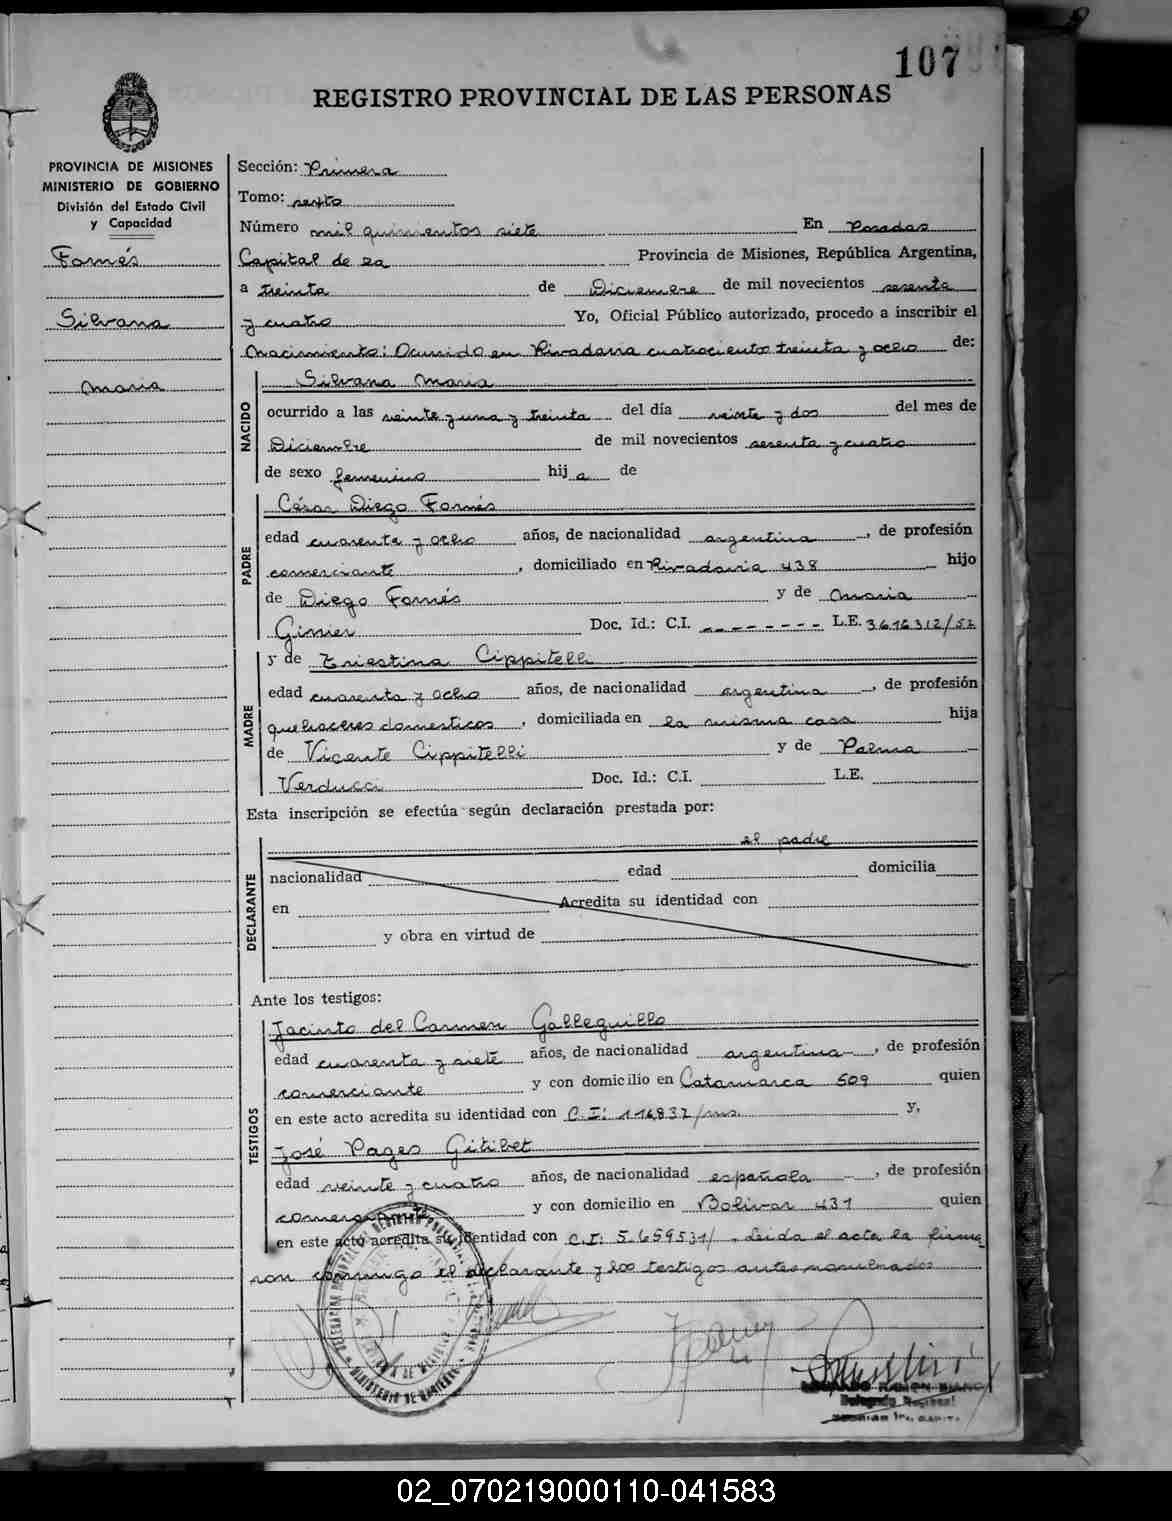 107
REGISTRO PROVINCIAL DE LAS PERSONAS
PROVINCIA DE MISIONES
MINISTERIO DE GOBIERNO
División del Estado Civil
y Capacidad
Fornés
Silvana
Maria
Sección: Primera
Tomo: sexto
Número mil quinientos siete En Posadas
Capital de la Provincia de Misiones, República Argentina,
a treinta de Diciembre de mil novecientos sesenta
y cuatro Yo, Oficial Público autorizado, procedo a inscribir el
Nacimiento: Ocurrido en Rivadavia cuatrocientos treinta y ocho de:
NACIDO
Silvana Maria
ocurrido a las veinte y una y treinta del día veinte y dos del mes de
Diciembre de mil novecientos sesenta y cuatro
de sexo femenino hija de
PADRE
César Diego Fornés
edad cuarenta y ocho años, de nacionalidad argentina, de profesión
comerciante, domiciliado en Rivadavia 438 hijo
de Diego Fornés y de Maria
Ginier Doc. Id.: C.I. -------- L.E. 3616312/52
MADRE
y de Triestina Cippitelli
edad cuarenta y ocho años, de nacionalidad argentina, de profesión
quehaceres domesticos, domiciliada en la misma casa hija
de Vicente Cippitelli y de Palma
Verducci Doc. Id.: C.I. L.E.
Esta inscripción se efectúa según declaración prestada por:
DECLARANTE
el padre
nacionalidad edad domicilia
en Acredita su identidad con
y obra en virtud de
Ante los testigos:
TESTIGOS
Jacinto del Carmen Galleguillo
edad cuarenta y siete años, de nacionalidad argentina, de profesión
comerciante y con domicilio en Catamarca 509 quien
en este acto acredita su identidad con C.I: 116837/ms. y,
José Pages Gitibet
edad veinte y cuatro años, de nacionalidad española, de profesión
comerciante y con domicilio en Bolivar 431 quien
en este acto acredita su identidad con C.I: 5.659531/. Leida el acta la firma
ron conmigo el declarante y los testigos antes nombrados
RAMON
Delegado
02_070219000110-041583